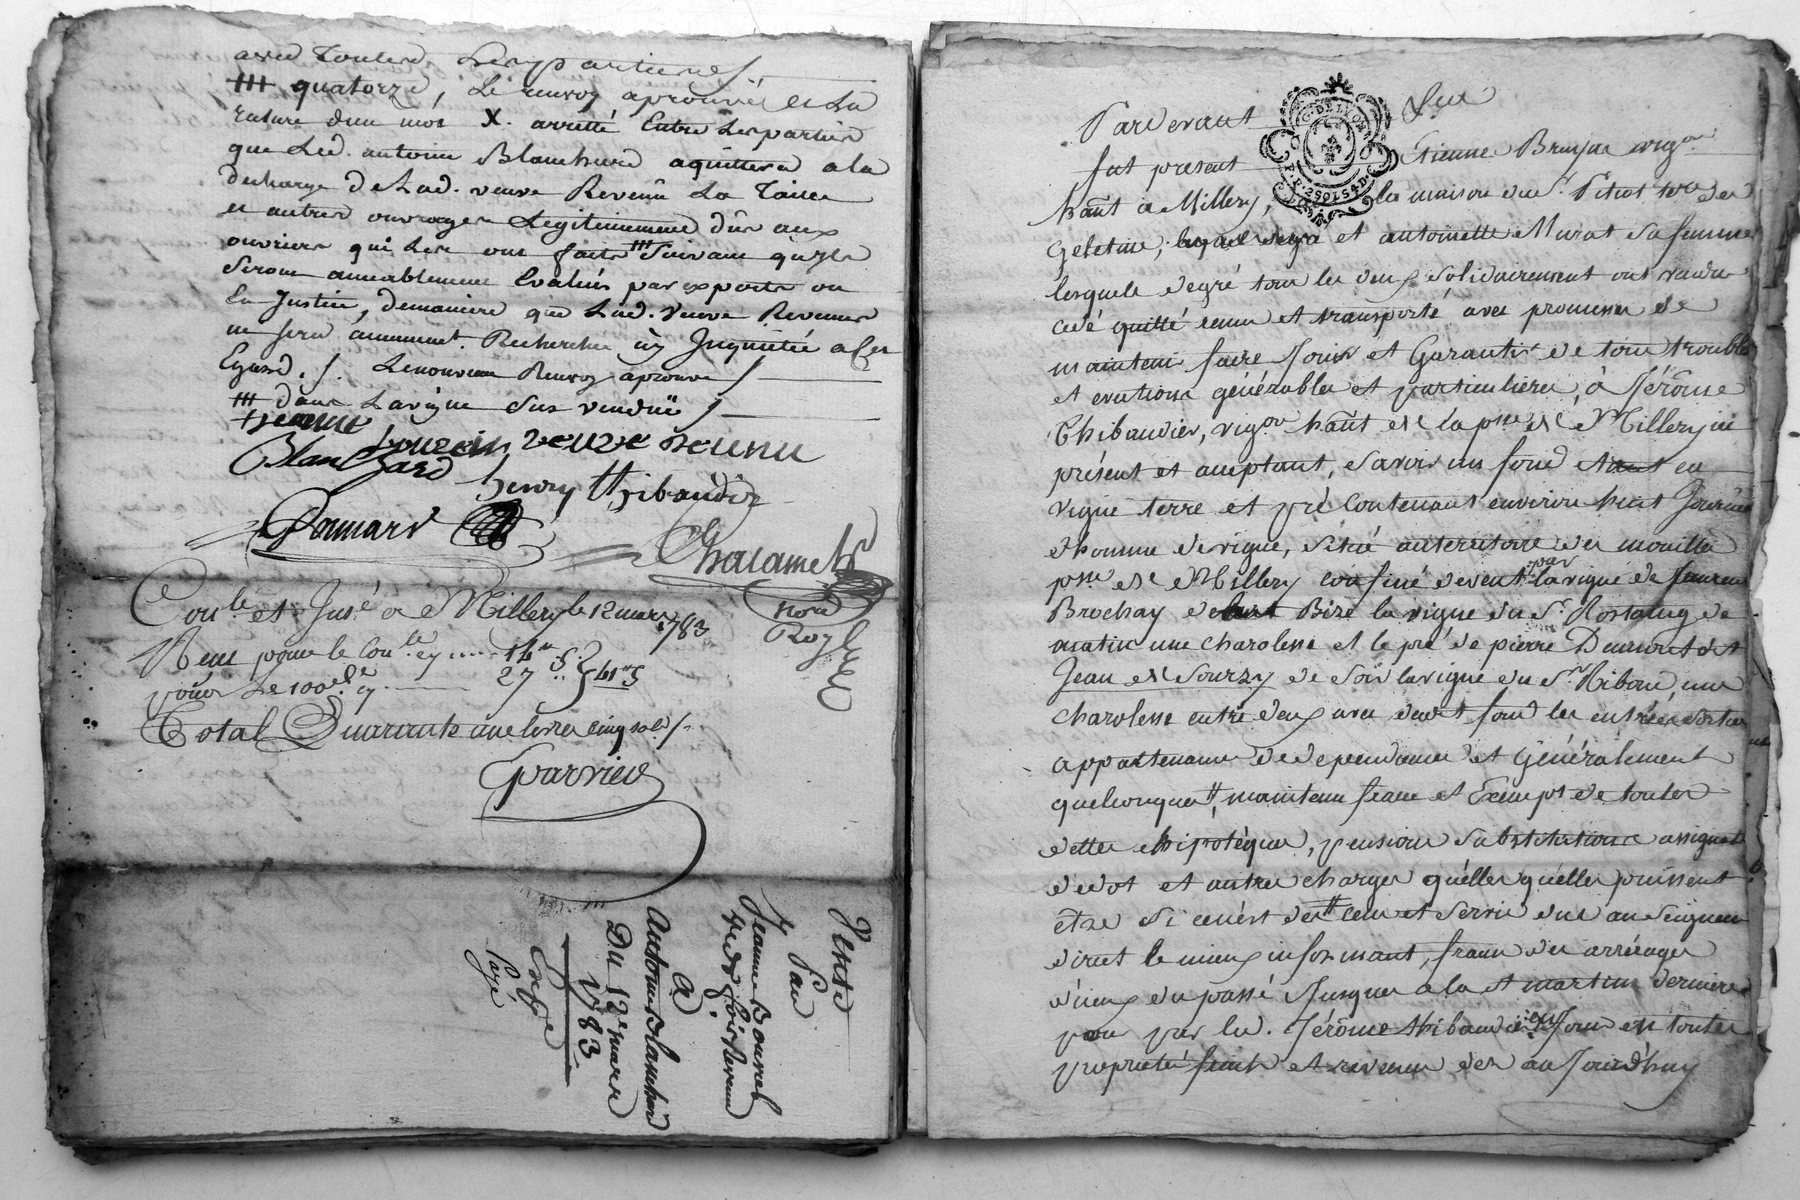 avec toutes les parties
quatorze, Le renvoy aprouvé et la
rature d'un mot X. arretté Entre Les parties
que Led. antoine Blanchard aquittera a la
decharge de Lad. veuve Revenu La Taille
et autres ouvrages Legitimement dûs aux
ouvriers qui Les ont faits suivant qu'ils
seront amiablement Evalués par experts ou
En Justice, de maniere que Lad. veuve Revenu
ne sera aucunement Recherchée ny Inquiettée a Cet
Egard. Le nouveau Renvoy aprouvé
dans La vigne sus vendüe
jeanne bourein veuve reunu
Blanchard henry thibaudier
Ponnard
Chalamel
nore
Royl
Con.lé et Jnsé a Millery le 12 mars 1783
Reçu pour le Con.le cy 14
pour Le 100e d.r cy 27
Total Quarante une livres cinq sols
Parrieu
Vente
Par
Jeanne Bourel
a
Antoine Blanchard
Du 12e mars
1783
Payé
Pardevant
fut present Etienne Brunjac vigon
hant a Millery, la maison du Sr
et antoinette Murat sa femme
lesquels de gré tous les deux solidairement ont vendu
cedé quitté remis et transporté avec promesse de
maintenir faire jouir et Garantir de tous troubles
et evictions générables et particulieres, à Jérôme
Thibaudier, vigon hant de la psse de Millery ici
présent et aceptant, savoir un fond en
vigne terre et pré Contenant environ huit Journées
d'homme de vigne, situé au territoire des mouilles
psse de Millery confiné de vent par la vigne de
Brochay de Bize la vigne du Sr Rostaing de
matin une charolesse et le pré de pierre Dumont et
Jean de Sourzy de soir la vigne du Sr Riboud, une
charolesse entre deux avec dudt fond les entrées sorties
appartenances dependances et Généralement
quelconques, maintenu franc et Exempt de toutes
dettes hipotèques, pensions substitutions assignats
de dot et autres charges quélles qu'elles puissent
être si ce n'est des cens et servis dus au Seigneur
direct le mieux informant, francs des arrérages
d'iceux du passé Jusques a la St martin derniere
pour par led. Jérôme thibaudier en jouir en toutes
propriété fruits et revenus dès aujourd'huy
G. DE LYON
2 SOLS 4 D.